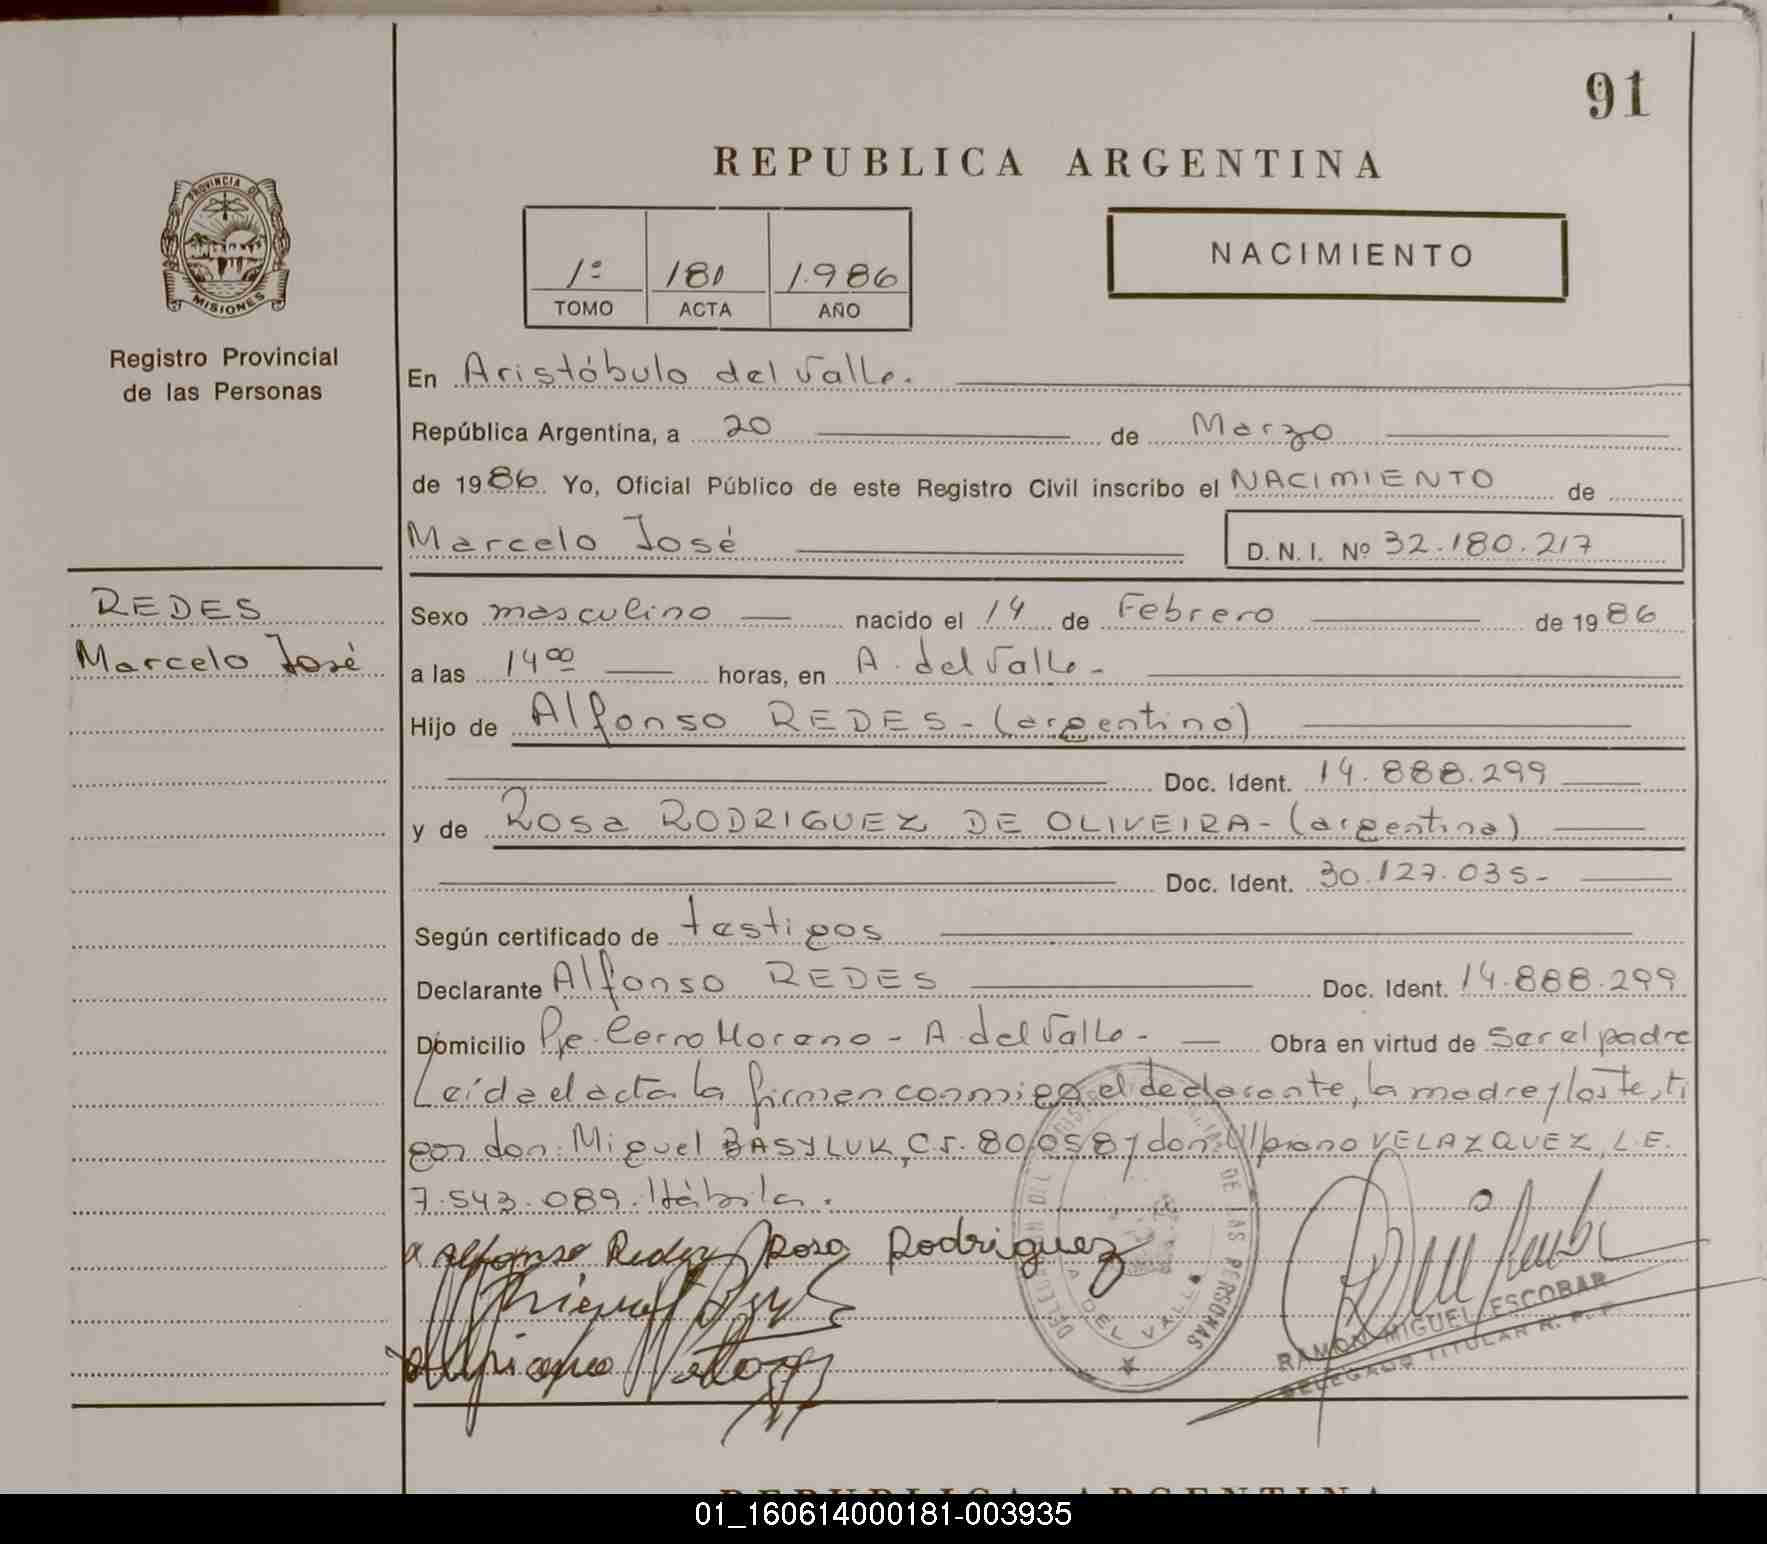 91
REPUBLICA ARGENTINA
PROVINCIA DE
MISIONES
Registro Provincial
de las Personas
1º 181 1.986
TOMO ACTA AÑO
NACIMIENTO
En Aristóbulo del Valle.
República Argentina, a 20 de Marzo
de 1986 Yo, Oficial Público de este Registro Civil inscribo el NACIMIENTO de
Marcelo José D. N. I. Nº 32.180.217
REDES
Marcelo José
Sexo masculino nacido el 14 de Febrero de 1986
a las 14 00 horas, en A. del Valle-
Hijo de Alfonso REDES-(argentino)
Doc. Ident. 14.888.299
y de Rosa RODRIGUEZ DE OLIVEIRA-(argentina)
Doc. Ident. 30.127.035-
Según certificado de testigos
Declarante Alfonso REDES Doc. Ident. 14.888.299
Domicilio Pje. Cerro Moreno - A. del Valle- Obra en virtud de ser el padre
Leída el acta la firman conmigo el declarante, la madre y los testi
gos don: Miguel BASYLUK, C.I. 80.058 y don Ulpiano VELAZQUEZ, L.E.
7.543.089. Hábila.
Alfonso Redes Rosa Rodriguez
DE LAS PERSONAS
DEL VALLE
RAMON MIGUEL ESCOBAR
DELEGADO TITULAR R. P. P.
REPUBLICA ARGENTINA
01_160614000181-003935